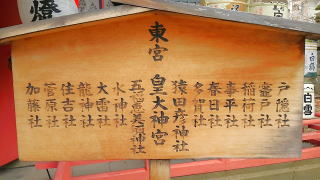 東宮
皇大神宮
戸隠社
竈戸社
稲荷社
事平社
春日社
多賀社
猿田彦神社
水神社
大雷社
龍神社
住吉社
菅原社
加藤社
燈
白雪